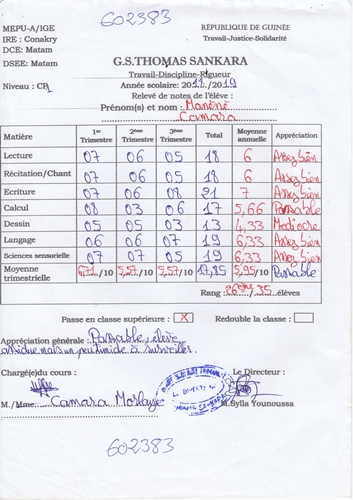 602383
MEPU-A/IGE
RÉPUBLIQUE DE GUINÉE
IRE : Conakry
Travail-Justice-Solidarité
DCE: Matam
DSEE: Matam
G.S.THOMAS SANKARA
Travail-Discipline-Rigueur
Niveau : CP1
Année scolaire: 2018./2019
Relevé de notes de l'élève :
Prénom(s) et nom : Manènè
Camara
Matière 1er Trimestre 2ème Trimestre 3ème Trimestre Total Moyenne annuelle Appréciation
Lecture 07 06 05 18 6 Assez bien
Récitation/Chant 07 06 05 18 6 Assez bien
Ecriture 07 06 08 21 7 Assez bien
Calcul 08 03 06 17 5,66 Passable
Dessin 05 05 03 13 4,33 Mediocre
Langage 06 06 07 19 6,33 Assez bien
Sciences sensorielle 07 07 05 19 6,33 Assez bien
Moyenne trimestrielle 6,71/10 5,57/10 5,57/10 17,85 5,95/10 Passable
Rang : 26ème/35 élèves
Passe en classe supérieure : X Redouble la classe :
Appréciation générale : Passable, élève
assidue mais un peu timide à surveiller.
Chargé(e)du cours : Le Directeur :
M./Mme Camara Morlaye M.Sylla Younoussa
602383